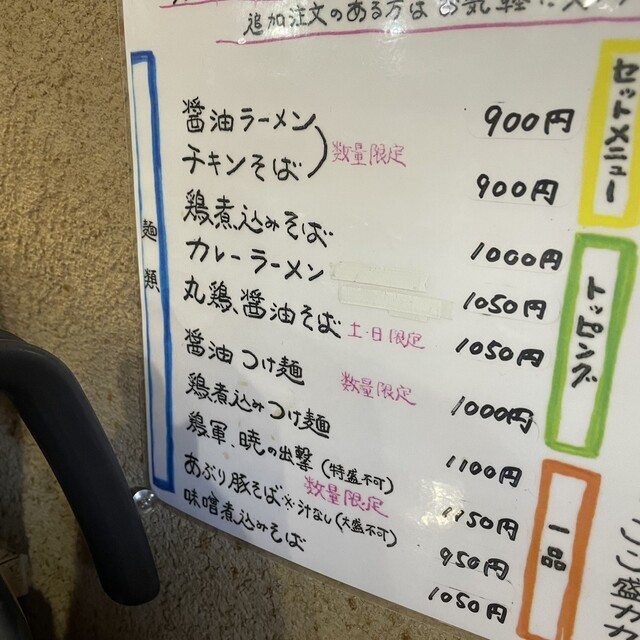 追加注文のある方はお気軽に
麺類
醤油ラーメン 900円
チキンそば 数量限定 900円
鶏煮込みそば 1000円
カレーラーメン 1050円
丸鶏、醤油そば 土・日限定 1050円
醤油つけ麺 数量限定 1000円
鶏煮込みつけ麺 1100円
鶏軍、暁の出撃(特盛不可) 1150円
あぶり豚そば※汁なし(大盛不可) 数量限定 950円
味噌煮込みそば 1050円
セットメニュー
トッピング
一品